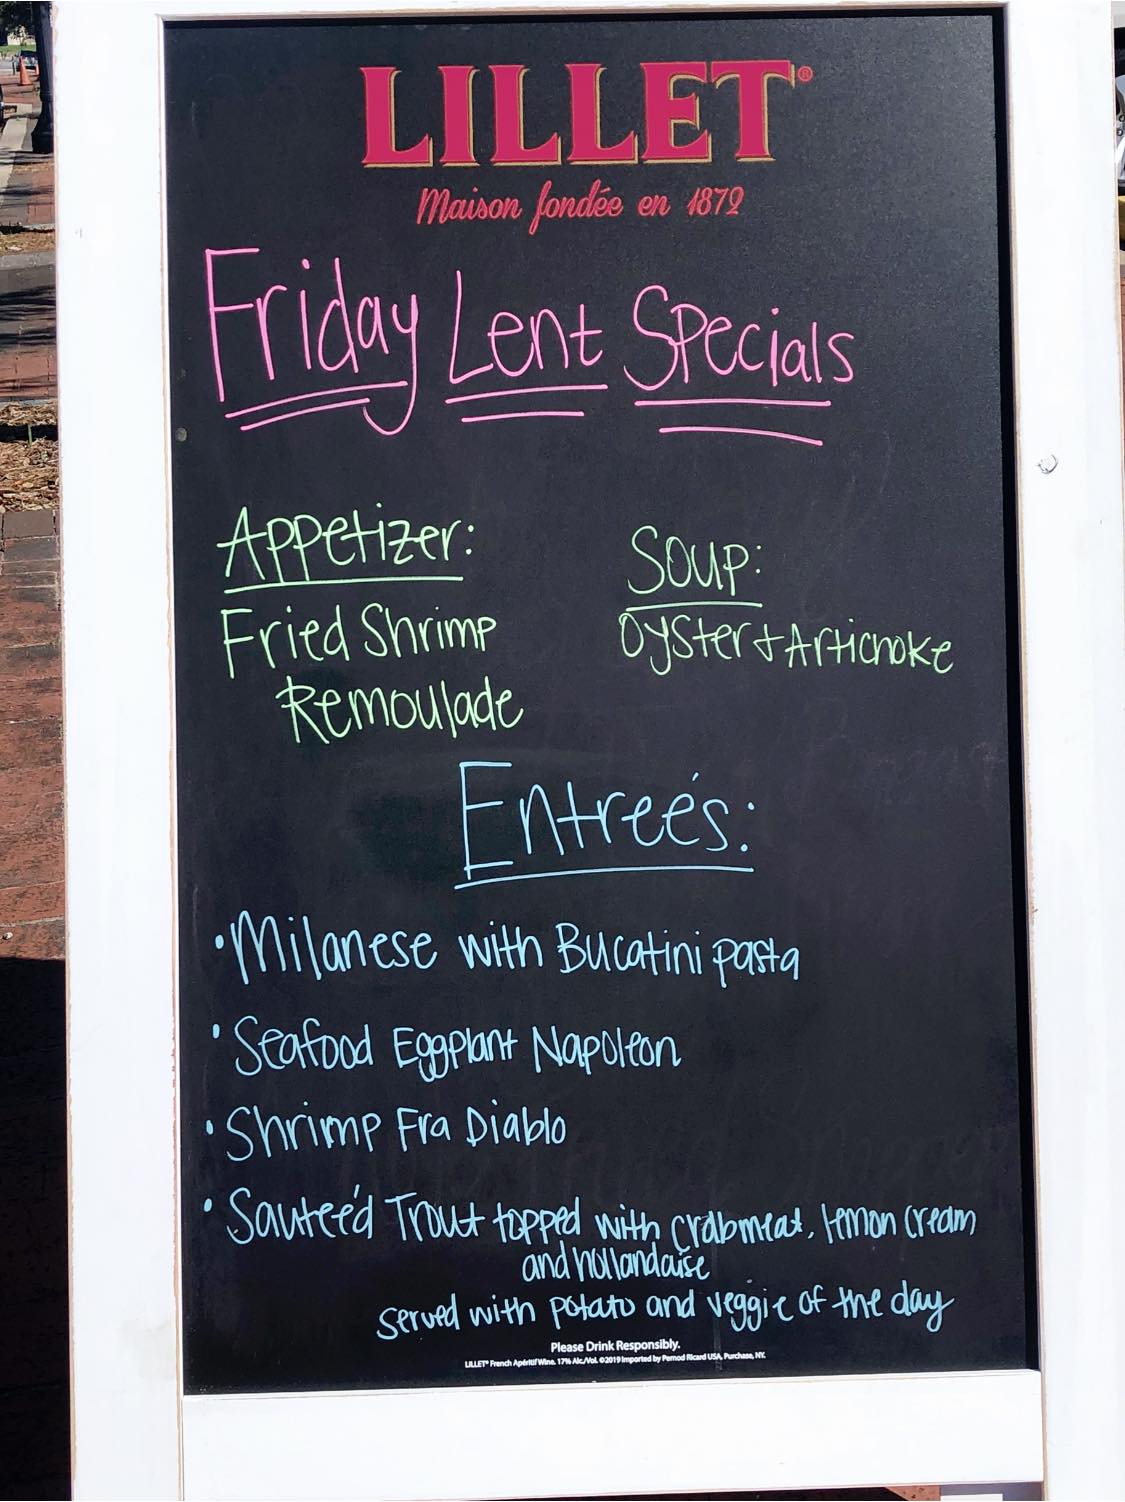 LILLET®
Maison fondée en 1872
Friday Lent Specials
Appetizer:
Fried Shrimp
Remoulade
Soup:
Oyster + Artichoke
Entreés:
• Milanese with Bucatini pasta
• Seafood Eggplant Napoleon
• Shrimp Fra Diablo
• Sauteé'd Trout topped with crabmeat, lemon cream
and hollandaise
served with potato and veggie of the day
Please Drink Responsibly.
LILLET® French Apéritif Wine. 17% Alc./Vol. ©2019 Imported by Pernod Ricard USA, Purchase, NY.